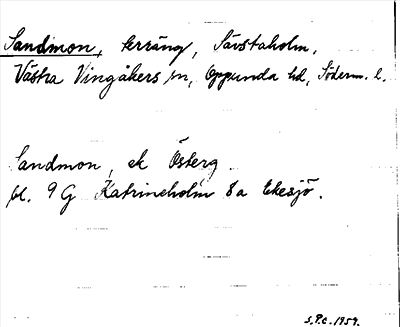 Sandmon, terräng, Sävstaholm,
Västra Vingåkers sn, Oppunda hd, Söderm. l.
Sandmon, ek Österg
bl. 9 G Katrineholm 8a Ekesjö.
S.P.C. 1959.